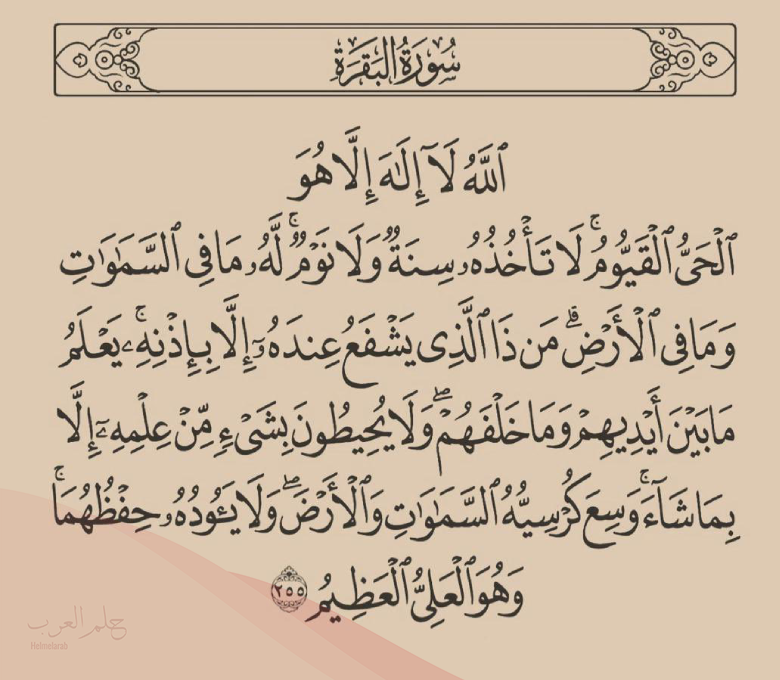 سُورَةُ البَقَرَةِ
ٱللَّهُ لَآ إِلَٰهَ إِلَّا هُوَ
ٱلْحَىُّ ٱلْقَيُّومُ ۚ لَا تَأْخُذُهُۥ سِنَةٌ وَلَا نَوْمٌ ۚ لَّهُۥ مَا فِى ٱلسَّمَٰوَٰتِ
وَمَا فِى ٱلْأَرْضِ ۗ مَن ذَا ٱلَّذِى يَشْفَعُ عِندَهُۥٓ إِلَّا بِإِذْنِهِۦ ۚ يَعْلَمُ
مَا بَيْنَ أَيْدِيهِمْ وَمَا خَلْفَهُمْ ۖ وَلَا يُحِيطُونَ بِشَىْءٍ مِّنْ عِلْمِهِۦٓ إِلَّا
بِمَا شَآءَ ۚ وَسِعَ كُرْسِيُّهُ ٱلسَّمَٰوَٰتِ وَٱلْأَرْضَ ۖ وَلَا يَـُٔودُهُۥ حِفْظُهُمَا ۚ
وَهُوَ ٱلْعَلِىُّ ٱلْعَظِيمُ ٢٥٥
حلم العرب
Helmelarab